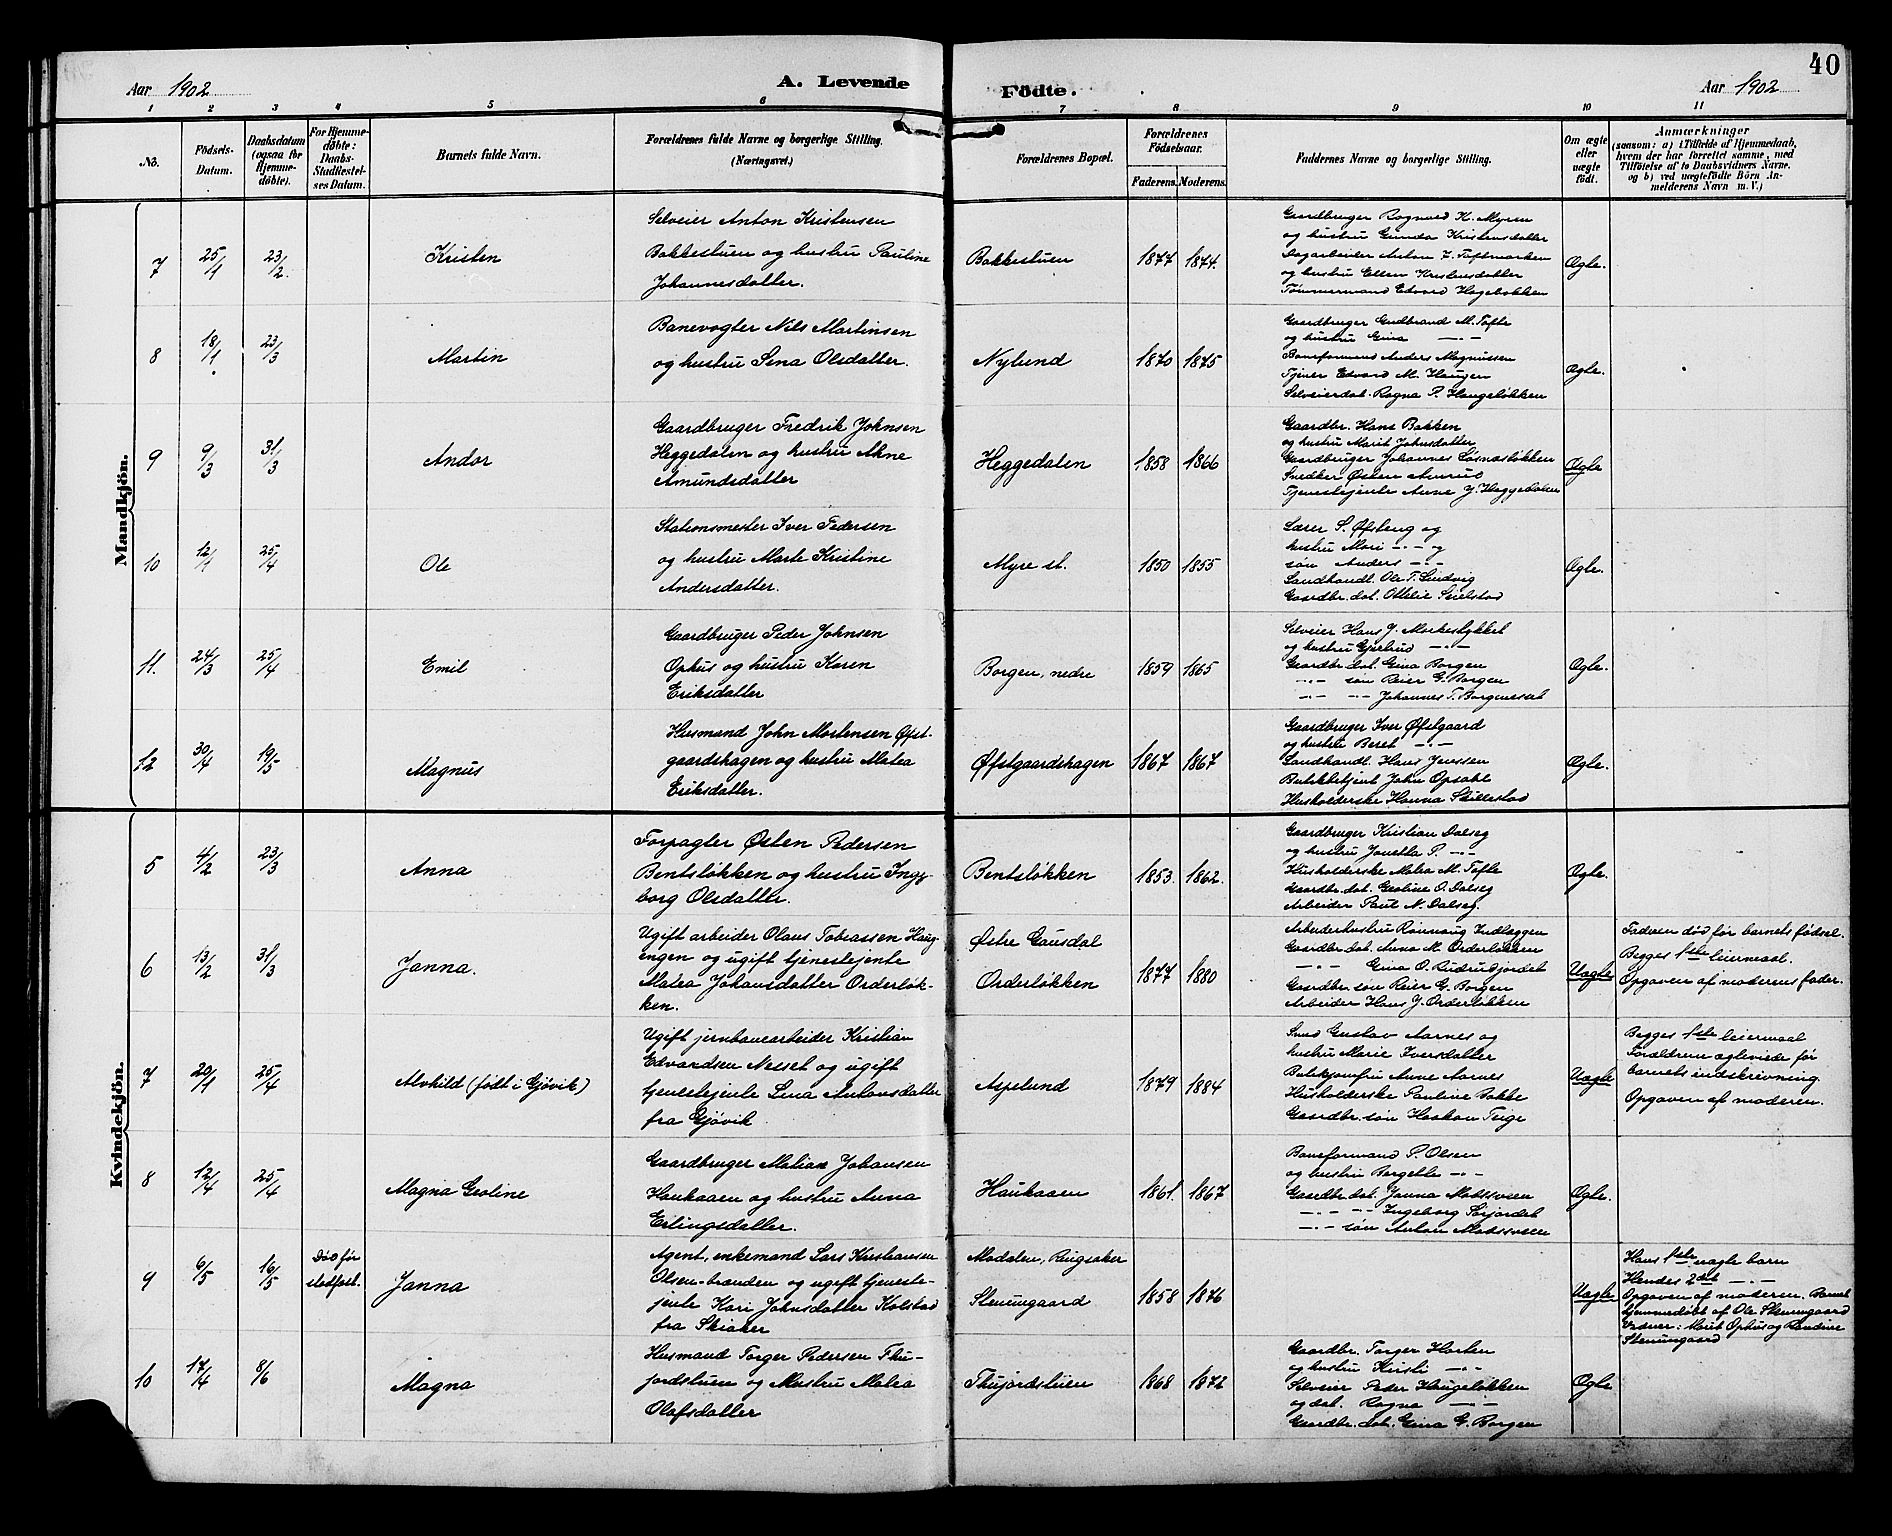 40
Aar 1902
A. Levende
Födte.
Aar 1902
1 2 3 4 5 6 7 8 9 10 11
No.
Födsels-Datum.
Daabsdatum (ogsaa for Hjemmedöbte).
For Hjemmedöbte: Daabs-Stadfæstelses Datum.
Barnets fulde Navn.
Forældrenes fulde Navne og borgerlige Stilling. (Næringsvei.)
Forældrenes Bopæl.
Forældrenes Födselsaar.
Faderens. Moderens.
Faddernes Navne og borgerlige Stilling.
Om ægte eller uægte födt.
Anmærkninger
(saasom: a) i Tilfælde af Hjemmedaab,
hvem der har forrettet samme, med
Tilföielse af to Daabsvidners Navne,
og b) ved uægtefödte Börn An-
melderens Navn m. V.)
Mandkjön.
7 25/1 23/2. Kristen
Selveier Anton Kristensen
Bakkestuen og hustru Pauline
Johannesdatter.
Bakkestuen 1877 1874.
Gaardbruger Ragnvard K. Myren
og hustru Gunda Kristensdatter
Dagarbeider Anton J. Toftmarken
og hustru Ellen Kristensdatter
Tömmermand Edvard Hagebakken
Ægte.
8 18/1 23/3 Martin
Banevogter Nils Martinsen
og hustru Lena Olsdatter.
Nylund 1870 1875
Gaardbruger Gudbrand M. Tofte
og hustru Gina —"—
Baneformand Anders Magnussen
Tjener Edvard M. Haugen
Selveierdat. Ragna P. Haugeløkken
Ægte.
9 9/3 31/3 Andor
Gaardbruger Fredrik Johnsen
Heggedalen og hustru Ane
Amundsdatter
Heggedalen 1858 1866
Gaardbr. Hans Bakken
og hustru Marit Johnsdatter
Gaardbruger Johannes
Snedker Østen
Tjenestejente Anne J. Heggedalen
Ægte
10 12/1 25/4 Ole
Stationsmester Iver Pedersen
og hustru Marte Kristine
Andersdatter.
Myre st. 1850 1855
Lærer S. Øfsteng og
hustru Mari —"— og
søn Anders —"—
Landhandl. Ole T. Lindvig
Gaardbr. dat. Othelie
Ægte.
11. 24/3 25/4 Emil
Gaardbruger Peder Johnsen
Ophus og hustru Karen
Eriksdatter
Borgen, nedre 1859 1865
Selveier Hans J. Markestykket
og hustru Gjertrud —"—
Gaardbr. dat. Gina Borgen
—"— søn Reier G. Borgen
—"— —"— Johannes T. Borgneset
Ægte.
12 30/4 19/5 Magnus
Husmand John Mortensen Øfst-
gaardshagen og hustru Matea
Eriksdatter.
Øfstgaardshagen 1867 1867
Gaardbruger Iver Øfstgaard
og hustru Beret —"—
Landhandl. Hans Jenssen
Butikbetjent John Opsahl
Husholderske Hanna Skillestad
Ægte.
Kvindekjön.
5 4/2 23/3 Anna
Forpagter Østen Pedersen
Bentsløkken og hustru Inge-
borg Olsdatter.
Bentsløkken 1853. 1862.
Gaardbruger Kristian Dalseg
og hustru Jonetta P. —"—
Husholderske Matea M. Tofte
Gaardbr. dat. Geoline O. Dalseg
Arbeider Paul N. Dalseg.
Ægte.
6 13/2 31/3 Janna.
Ugift arbeider Olaus Tobiassen Haug-
engen og ugift tjenestejente
Matea Johansdatter Orderløk-
ken.
Østre Gausdal
Orderløkken 1877 1880
Arbeiderhustru Rønnaug Indlæggen
Gaardbr. dat. Anna M. Orderløkken
—"— Gina O. Rudrudjordet
Gaardbr. søn Reier G. Borgen
Arbeider Hans J. Orderløkken
Uægte
Faderen død før barnets fødsel.
Begges 1ste leiermaal.
Opgaven af moderens fader.
7 20/1 25/4 Alvhild (født i Gjøvik)
Ugift jernbanearbeider Kristian
Edvardsen Neset og ugift
tjenestejente Lina Antonsdatter
fra Gjøvik
Aspelund 1879 1884
Smed Gustav Aarnes og
hustru Marie Iversdatter
Butikjomfru Anne Aarnes
Husholderske Pauline Bakke
Gaardbr. søn Haakon Teige
Uægte
Begges 1ste leiermaal
Forældrene ægteviede før
barnets indskrivning.
Opgaven af moderen.
8 12/4 25/4 Magna Geoline
Gaardbruger Matias Johansen
Haukaaen og hustru Anna
Erlingsdatter.
Haukaaen 1861. 1867
Baneformand P. Olsen
og hustru Bergette —"—
Gaardbr. dat. Janna Matssveen
—"— —"— Ingeborg Sørjordet
—"— søn Anton Matssveen
Ægte.
9 6/5 16/5 Død før stadfæst. Janna
Agent, enkemand Lars Kristiansen
Olsen-branden og ugift tjeneste-
jente Kari Johnsdatter Kolstad
fra Skiaker
Modalen, Ringsaker
Stenumgaard 1858 1876
Uægte
Hans 1ste uægte barn
Hendes 2det —"—
Opgaven af moderen. Barnet
hjemmedøbt af Ole Stenumgaard
Vidner: Marit Ophus og Randine
Stenumgaard
10 17/4 8/6 Magna
Husmand Torger Pedersen Thu-
jordstuen og Hustru Matea
Olafsdatter
Thujordstuen 1868 1872
Gaardbr. Torger Harten
og hustru Kristi —"—
Selveier Peder Haugeløkken
og dat. Ragna —"—
Gaardbr. dat. Gina G. Borgen
Ægte